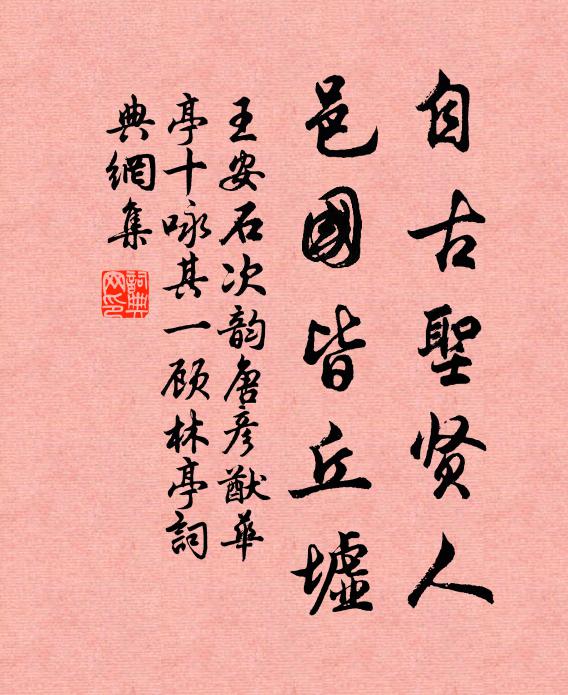 自古聖贤人
邑國皆丘墟
王安石次韵唐彦猷華
亭十咏其一顾林亭詞
典網集
詞典网印